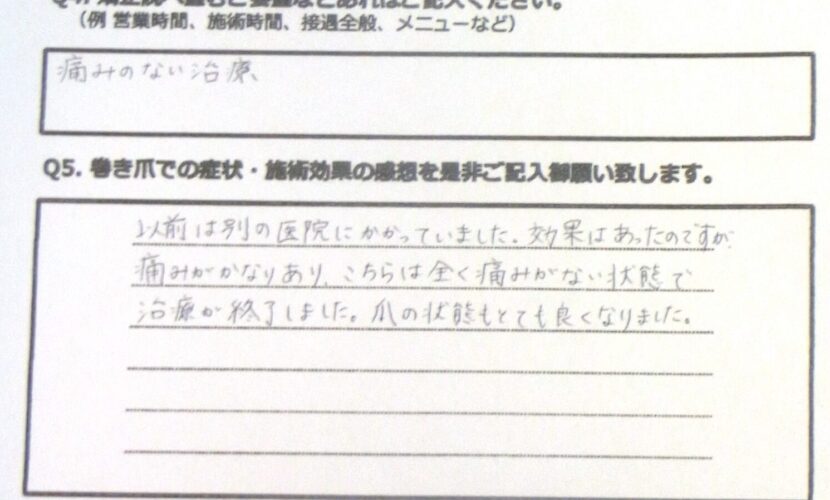 （例 営業時間、施術時間、接遇全般、メニューなど）
痛みのない治療、
Q5. 巻き爪での症状・施術効果の感想を是非ご記入御願い致します。
以前は別の医院にかかっていました。効果はあったのですが
痛みがかなりあり、こちらは全く痛みがない状態で
治療が終了しました。爪の状態もとても良くなりました。